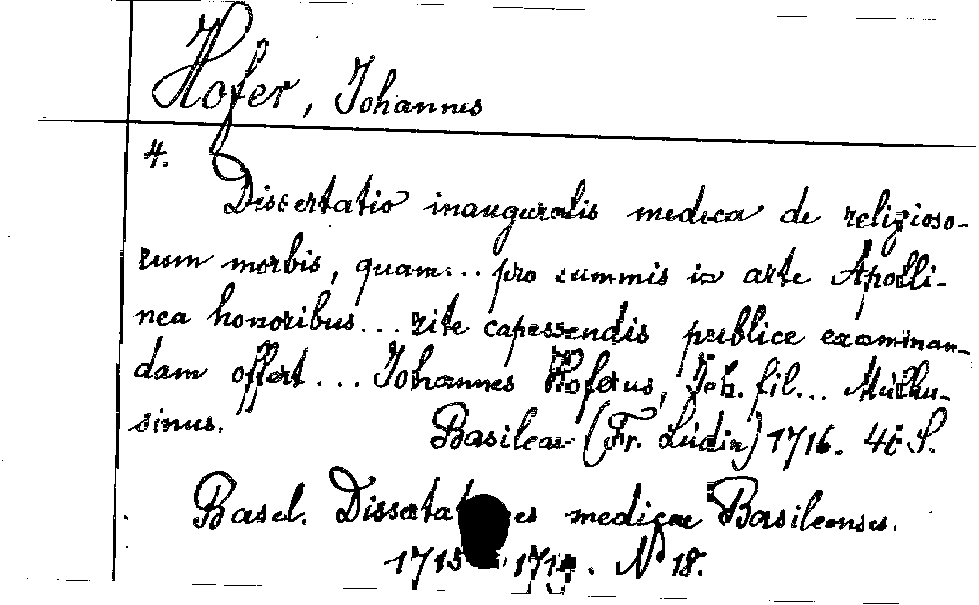 Hofer, Johannes
4.
Dissertatio inauguralis medica de religioso-
rum morbis, quam... pro summis in arte Apolli-
nea honoribus... rite capessendis publice examinan-
dam offert... Johannes Hoferus, Joh. fil... Mülhu-
sinus. Basileae (Fr. Lüdin) 1716. 4°
Basel. Dissertationes medicae Basileenses.
1715 N° 18.